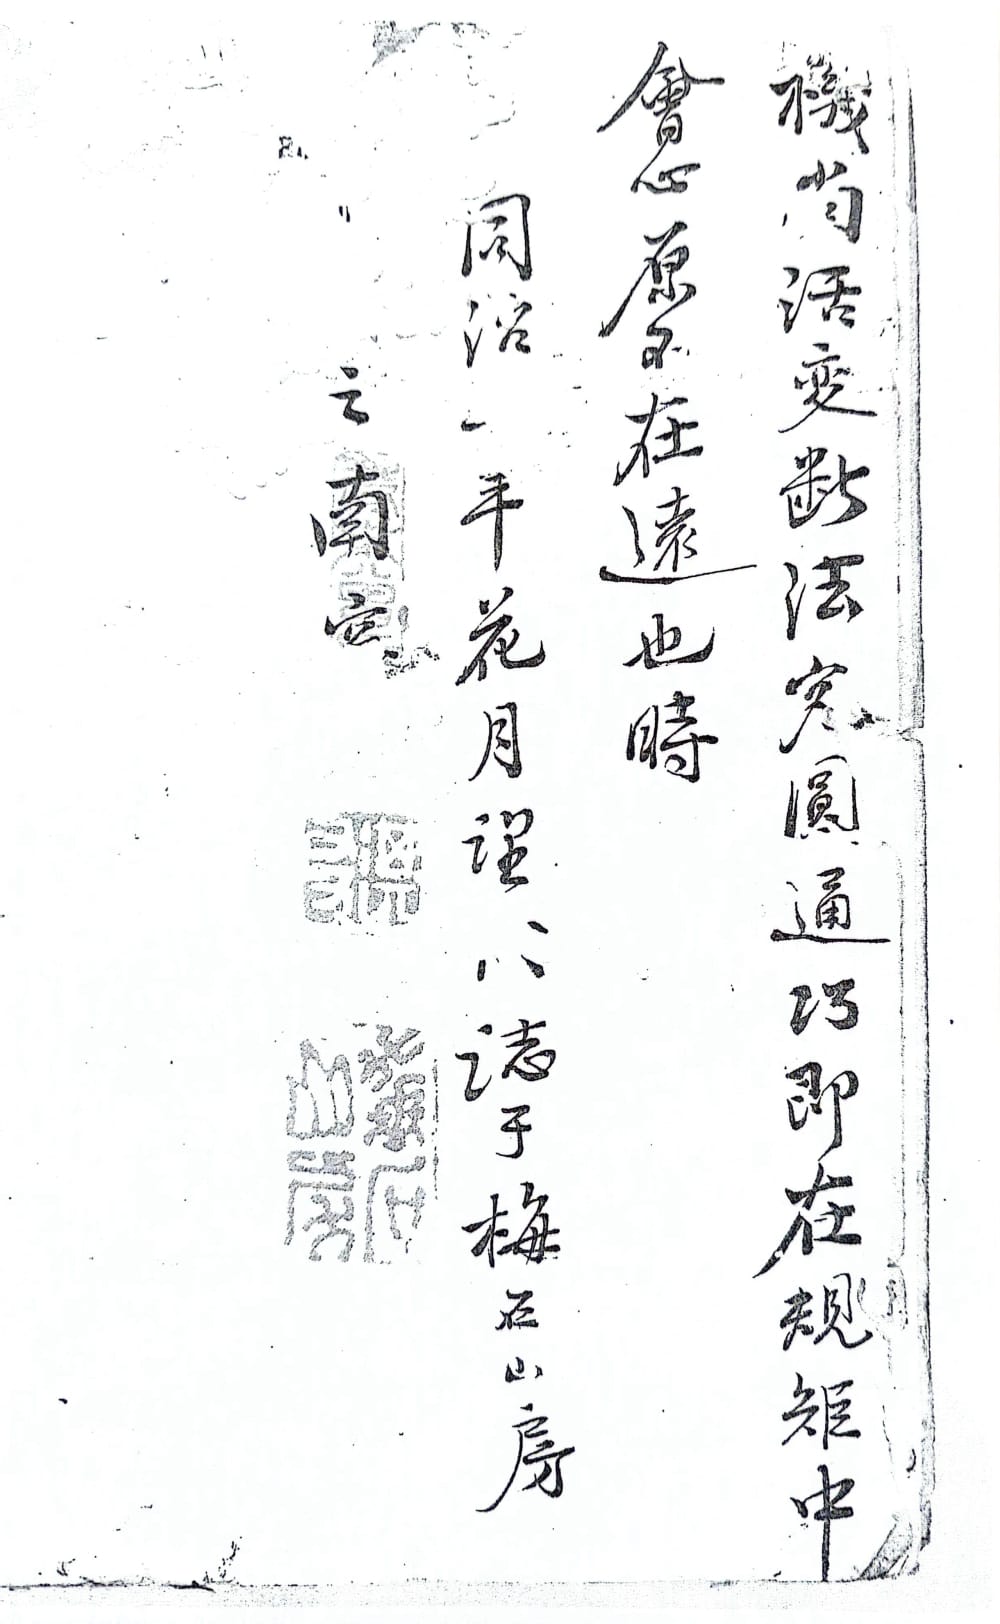 機尚活變斷法究圓通巧即在規矩中
會心原不在遠也時
同治一年花月望八誌于梅石山房
南